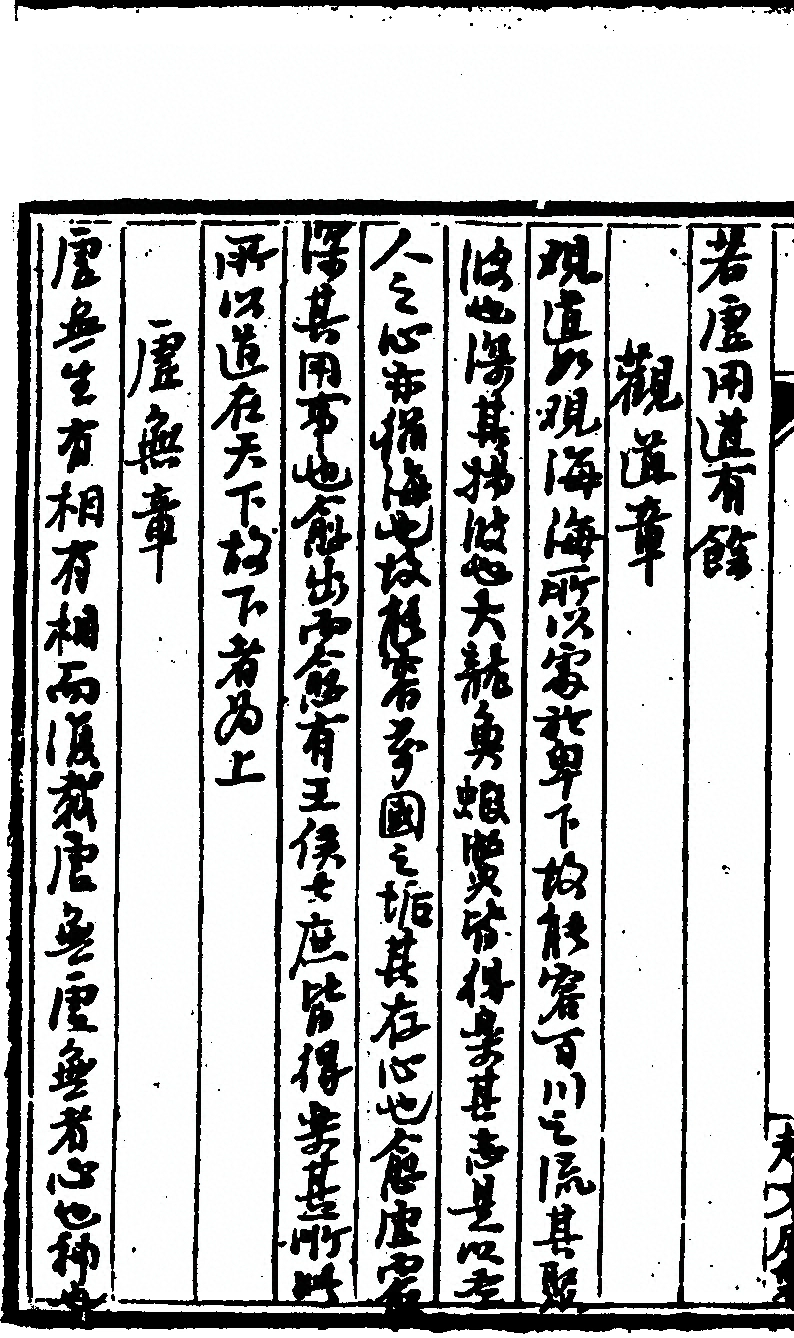 若虛用道有餘
觀道章
覌道如覌海海所以處於卑下故能容百川之流其聚
波也深其揚波也大龍魚蝦蟹皆得樂其志是以聖
人之心亦猶海也故能容萬國之垢其存心也愈虛而愈
深其用事也愈出而愈有王侯士庶皆得樂其所此
所以道在天下故下者為上
虛無章
虛無生有相有相而復虛無虛無者心也神也